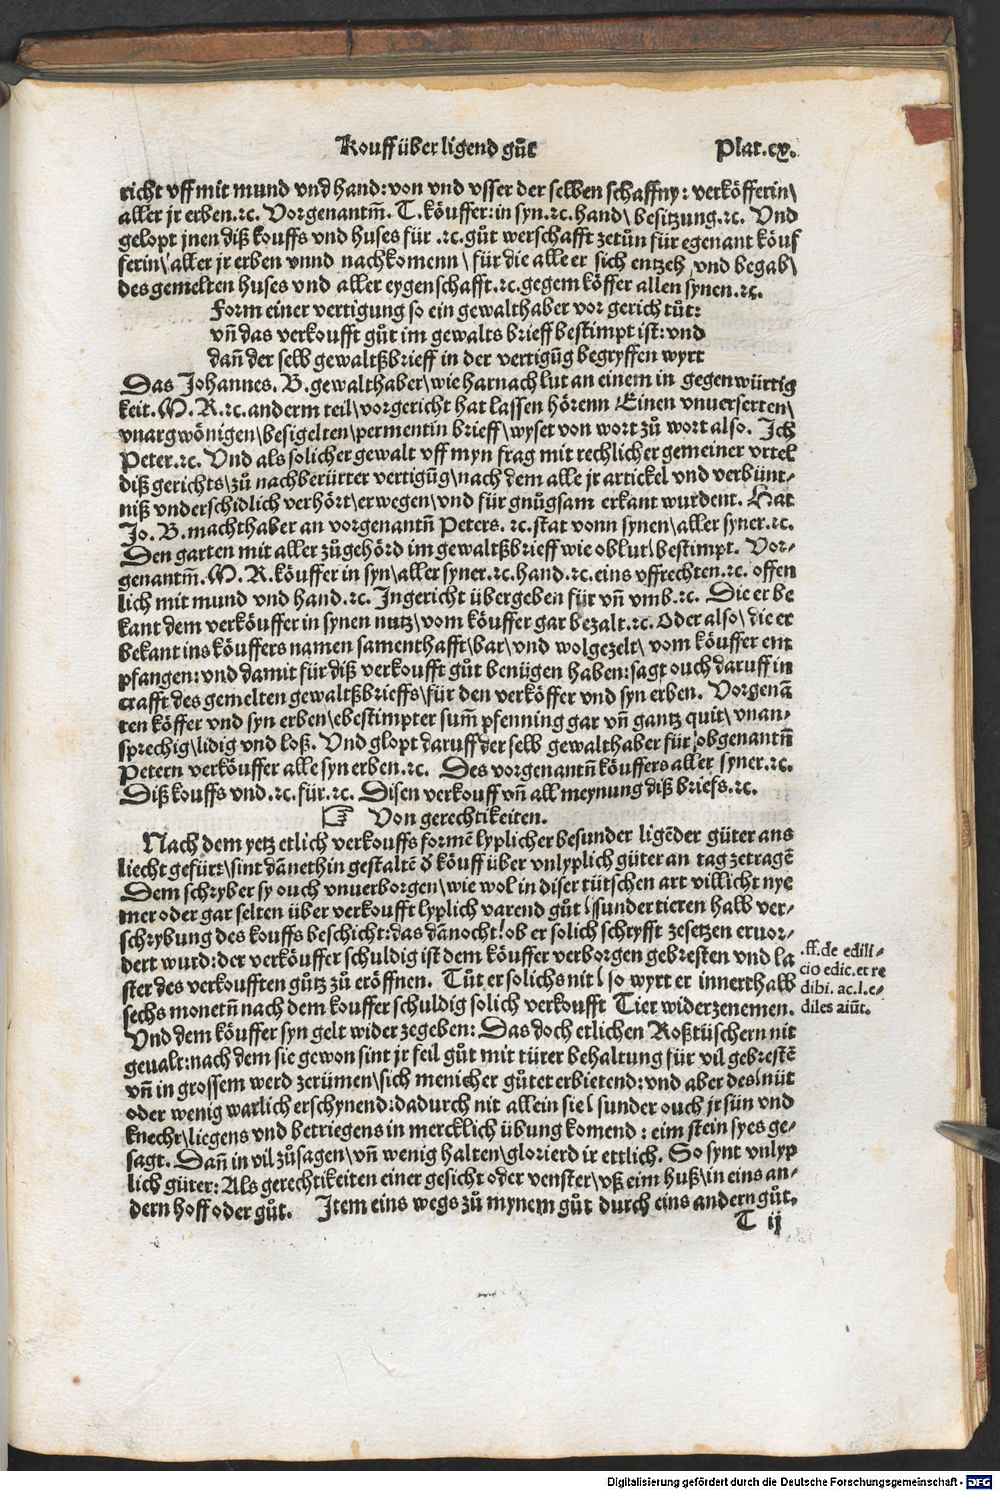 Kouff über ligend gůt Plat.cx.
richt vff mit mund vnd hand: von vnd vsser der selben schaffny: verköfferin\
aller jr erben.ꝛc. Vorgenantm̃. T. köuffer: in syn.ꝛc. hand\ besitzung.ꝛc. Vnd
gelopt jnen diß kouffs vnd huses für .ꝛc. gůt werschafft zetůn für egenant köuf
ferin\ aller jr erben vnnd nachkomenn\ für die alle er sich entzeh vnd begab\
des gemelten huses vnd aller eygenschafft.ꝛc. gegem köffer allen synen.ꝛc.
Form einer vertigung so ein gewalthaber vor gerich tůt:
vñ das verkoufft gůt im gewalts brieff bestimpt ist: vnd
dañ der selb gewaltßbrieff in der vertigũg begryffen wyrt
Das Johannes. B. gewalthaber\ wie harnach lut an einem in gegenwürtig
keit. M. R.ꝛc. anderm teil\ vorgericht hat lassen hörenn Einen vnuerserten\
vnargwönigen\ besigelten\ permentin brieff\ wyset von wort zů wort also. Ich
Peter.ꝛc. Vnd als solicher gewalt vff myn frag mit rechlicher gemeiner vrtel
diß gerichts\ zů nachberürter vertigũg\ nach dem alle jr artickel vnd verbünt-
niß vnderschidlich verhört\ erwegen\ vnd für gnůgsam erkant wurdent. Hat
Jo. B. machthaber an vorgenantñ Peters. ꝛc. stat vonn synen\ aller syner.ꝛc.
Den garten mit aller zůgehörd im gewaltßbrieff wie oblut\ bestimpt. Vor-
genantm̃. M. R. köuffer in syn\ aller syner.ꝛc. hand.ꝛc. eins vffrechten.ꝛc. offen
lich mit mund vnd hand.ꝛc. In gericht übergeben für vñ vmb.ꝛc. Die er be
kant dem verköuffer in synen nutz\ vom köuffer gar bezalt.ꝛc. Oder also\ die er
bekant ins köuffers namen samenthafft\ bar\ vnd wolgezelt\ vom köuffer ent
pfangen: vnd damit für diß verkoufft gůt benügen haben: sagt ouch daruff in
crafft des gemelten gewaltßbrieffs\ für den verköffer vnd syn erben. Vorgenã
ten köffer vnd syn erben\ ebestimpter sum̃ pfenning gar vñ gantz quit\ vnan-
sprechig\ lidig vnd loß. Vnd glopt daruff der selb gewalthaber für obgenantñ
Petern verköuffer alle syn erben.ꝛc. Des vorgenantñ köuffers aller syner.ꝛc.
Diß kouffs vnd .ꝛc. für.ꝛc. Disen verkouff vñ all meynung diß briefs.ꝛc.
☞ Von gerechtikeiten.
Nach dem yetz etlich verkouffs formẽ lyplicher besunder ligẽder güter ans
liecht gefürt\ sint dãnethin gestaltẽ d̾ köuff über vnlyplich güter an tag zetragẽ
Dem schryber sy ouch vnuerborgen\ wie wol in diser tütschen art villicht nye
mer oder gar selten über verkoufft lyplich varend gůt\ sunder tieren halb ver-
schrybung des kouffs beschicht: das dãnocht\ ob er solich schryfft zesetzen eruor-
dert wurd: der verköuffer schuldig ist dem köuffer verborgen gebresten vnd la
ster des verkoufften gůtz zů eröffnen. Tůt er solichs nit\ so wyrt er innerthalb
sechs monetñ nach dem kouffer schuldig solich verkoufft Tier widerzenemen.
Vnd dem köuffer syn gelt wider zegeben: Das doch etlichen Roßtüschern nit
geualt: nach dem sie gewon sint jr feil gůt mit türer behaltung für vil gebrestẽ
vñ in grossem werd zerümen\ sich menicher gůtet erbietend: vnd aber des\ nüt
oder wenig warlich erschynend: dadurch nit allein sie\ sunder ouch jr sün vnd
knecht\ liegens vnd betriegens in mercklich übung komend: eim stein syes ge-
sagt. Dañ in vil zůsagen\ vñ wenig halten\ glorierd ir ettlich. So synt vnlyp
lich güter: Als gerechtikeiten einer gesicht oder venster\ vß eim huß\ in eins an-
dern hoff oder gůt. Item eins wegs zů mynem gůt durch eins andern gůt.
T ij
.ff. de edili-
cio edic. et re
dibi. ac. l. e-
diles aiũt.
Digitalisierung gefördert durch die Deutsche Forschungsgemeinschaft - DFG